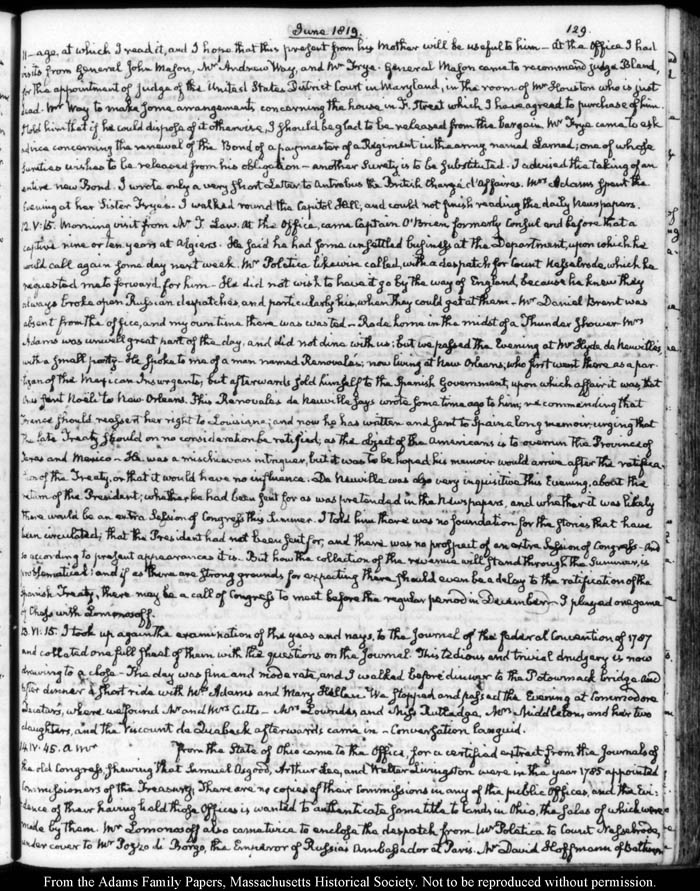 June 1819.
129.
11 – age, at which I read it, and I hope that this present from his Mother will be useful to him – At the Office I had
visits from General John Mason, Mr Andrew Way, and Mr Frye. General Mason came to recommend Judge Bland,
for the appointment of Judge of the United States District Court in Maryland, in the room of Mr Houston who is just
dead. Mr Way to make some arrangements concerning the house in F. Street which I have agreed to purchase of him.
I told him that if he could dispose of it otherwise, I should be glad to be released from the bargain. Mr Frye came to ask
advice concerning the renewal of the Bond of a paymaster of a Regiment in the army named Larned; one of whose
Sureties wishes to be released from his obligation – another Surety, is to be substituted. I advised the taking of an
entire new Bond. I wrote only a very short Letter to Antrobus the British Chargé d'Affaires. Mrs Adams spent the
Evening at her Sister Frye's. I walked round the Capitol Hill, and could not finish reading the daily Newspapers.
12. V:15. Morning visit from Mr T. Law. At the Office, came Captain O'Brien formerly Consul and before that a
captive nine or ten years at Algiers. He said he had some unsettled business at the Department, upon which he
would call again some day next week. Mr Poletica likewise called, with a despatch for Count Nesselrode, which he
requested me to forward for him – He did not wish to have it go by the way of England, because he knew they
always broke open Russian despatches, and particularly his, when they could get at them – Mr Daniel Brent was
absent from the office, and my own time there was wasted – Rode home in the midst of a Thunder Shower. Mrs
Adams was unwell great part of the day, and did not dine with us; but we passed the Evening at Mr Hyde de Neuville's,
with a small party – He spoke to me of a man named Ramovales; now living at New Orleans, who first went there as a par-
tizan of the Mexican Insurgents, but afterwards sold himself to the Spanish Government, upon which affair it was, that
Onis sent Noeli to New Orleans. This Ramovales de Neuville says wrote some time ago to him, recommending that
France should reassert her right to Louisiana; and now he has written and sent to Spain a long memoir, urging that
the late Treaty should on no consideration be ratified, as the object of the Americans is to overrun the Provinces of
Texas and Mexico – He was a mischievous intriguer, but it was to be hoped his memoir would arrive after the ratifica-
tion of the Treaty, or that it would have no influence. De Neuville was also very inquisitive this Evening, about the
return of the President; whether he had been sent for as was pretended in the Newspapers, and whether it was likely
there would be an extra Session of Congress this Summer. I told him there was no foundation for the stories that have
been circulated; that the President had not been sent for, and there was no prospect of an extra Session of Congress – And
so according to present appearances it is. But how the collection of the revenue will stand through the Summer, is
problematical: and if as there are strong grounds for expecting there should even be a delay to the ratification of the
Spanish Treaty, there may be a call of Congress to meet before the regular period in December – I played one game
of Chess with Lomonosoff.
13. VI:15. I took up again the examination of the yeas and nays, to the Journal of the federal Convention of 1787
and collated one full sheet of them with the questions on the Journal. This tedious and trivial drudgery is now
drawing to a close – The day was fine and moderate, and I walked before dinner to the Potowmack bridge and
after dinner a short ride with Mrs Adams and Mary Hellen. We stopped and passed the Evening at Commodore
Decatur's, where we found Mr and Mrs Cutts – Mrs Lowndes and Miss Rutledge, Mrs Middleton, and her two
daughters, and the Viscount de Quabeck afterwards came in – Conversation languid.
14. IV:45. A Mr from the State of Ohio came to the Office, for a certified extract from the Journals of
the old Congress, shewing that Samuel Osgood, Arthur Lee, and Walter Livingston were in the year 1785 appointed
Commissioners of the Treasury. There are no copies of their Commissions in any of the public Offices, and the Evi-
dence of their having held those Offices is wanted to authenticate some title to lands in Ohio, the sales of which were
made by them. Mr Lomonosoff also came twice to enclose the despatch from Mr Poletica to Count Nesselrode,
under cover to Mr Pozzo di Borgo, the Emperor of Russia's Ambassador at Paris. Mr David Hoffmann of Baltimore
From the Adams Family Papers, Massachusetts Historical Society. Not to be reproduced without permission.